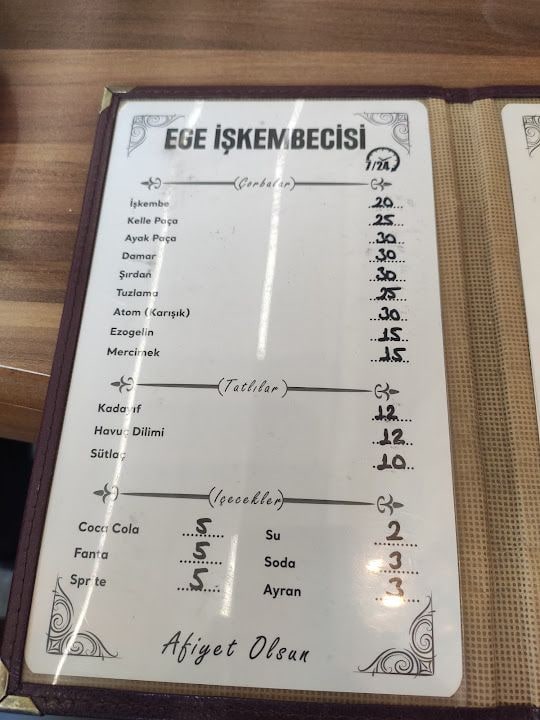 EGE İŞKEMBECİSİ
7/24
(Çorbalar)
İşkembe 20
Kelle Paça 25
Ayak Paça 30
Damar 30
Şırdan 30
Tuzlama 25
Atom (Karışık) 30
Ezogelin 15
Mercimek 15
(Tatlılar)
Kadayıf 12
Havuç Dilimi 12
Sütlaç 10
(İçecekler)
Coca Cola 5 Su 2
Fanta 5 Soda 3
Sprite 5 Ayran 3
Afiyet Olsun